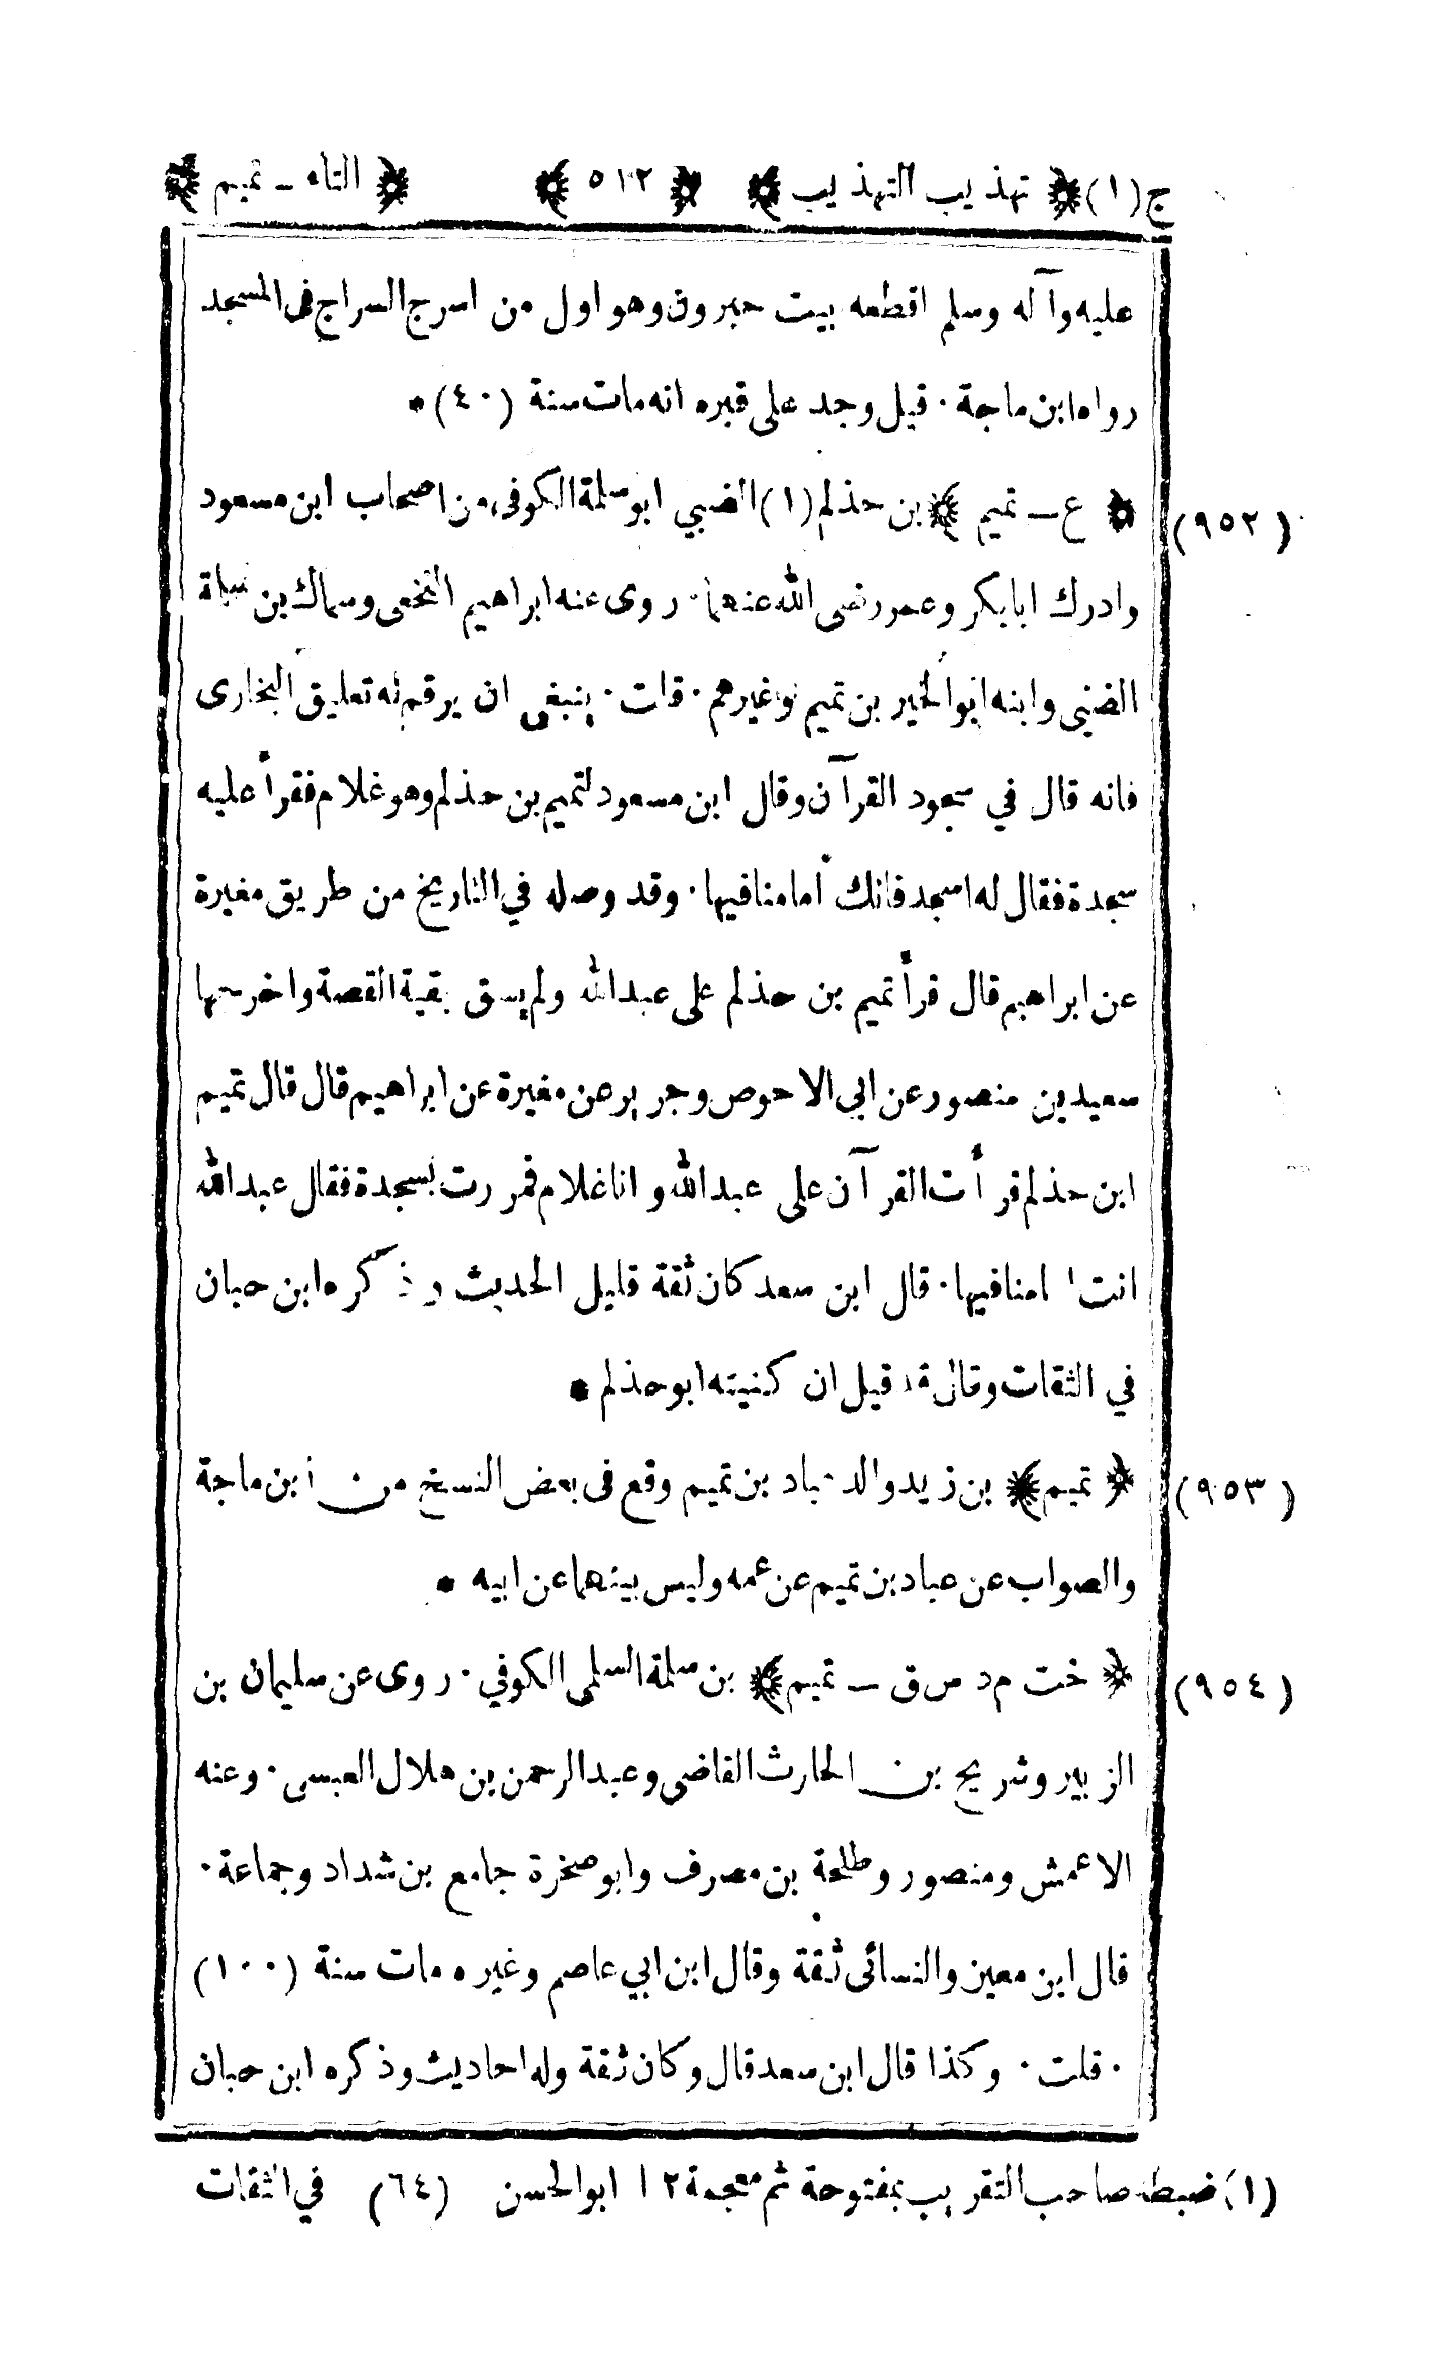 ج (١) ﴿ تهذيب التهذيب ﴾ ﴿ ٥١٢ ﴾ ﴿ التاء ـ تميم ﴾
عليه وآله وسلم اقطعه بيت حبرون وهو اول من اسرج السراج في المسجد
رواه ابن ماجة · قيل وجد على قبره انه مات سنة (٤٠) *
(٩٥٢) ﴿ ع ـ تميم ﴾ بن حذلم (١) الضبي ابو سلمة الكوفي من اصحاب ابن مسعود
وادرك ابا بكر وعمر رضى الله عنهما · روى عنه ابراهيم النخعى وسماك بن سلمة
الضبي وابنه ابو الخير بن تميم وغيرهم · قلت · ينبغى ان يرقم له تعليق البخارى
فانه قال في سجود القرآن وقال ابن مسعود لتميم بن حذلم وهو غلام فقرأ عليه
سجدة فقال له اسجد فانك أمامنا فيها · وقد وصله في التاريخ من طريق مغيرة
عن ابراهيم قال قرأ تميم بن حذلم على عبد الله ولم يسق بقية القصة واخرجها
سعيد بن منصور عن ابي الاحوص وجرير عن مغيرة عن ابراهيم قال قال تميم
ابن حذلم قرأت القرآن على عبد الله وانا غلام فمررت بسجدة فقال عبد الله
انت امامنا فيها · قال ابن سعد كان ثقة قليل الحديث وذكره ابن حبان
في الثقات وقال قد قيل ان كنيته ابو حذلم *
(٩٥٣) ﴿ تميم ﴾ بن زيد والد عباد بن تميم وقع فى بعض النسخ من ابن ماجة
والصواب عن عباد بن تميم عن عمه وليس بينهما عن ابيه *
(٩٥٤) ﴿ خت م د س ق ـ تميم ﴾ بن سلمة السلمى الكوفي · روى عن سليمان بن
الزبير وشريح بن الحارث القاضى وعبد الرحمن بن هلال العبسى · وعنه
الاعمش ومنصور وطلحة بن مصرف وابو صخرة جامع بن شداد وجماعة ·
قال ابن معين والنسائى ثقة وقال ابن ابي عاصم وغيره مات سنة (١٠٠)
· قلت · وكذا قال ابن سعد قال وكان ثقة وله احاديث وذكره ابن حبان
(١) ضبطه صاحب التقريب بمفتوحة ثم معجمة ١٢ ابو الحسن (٦٤) في الثقات